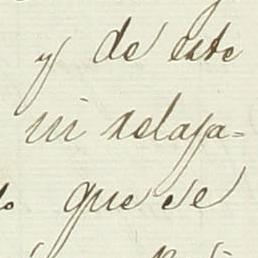 y de este
ni relaja=
que se